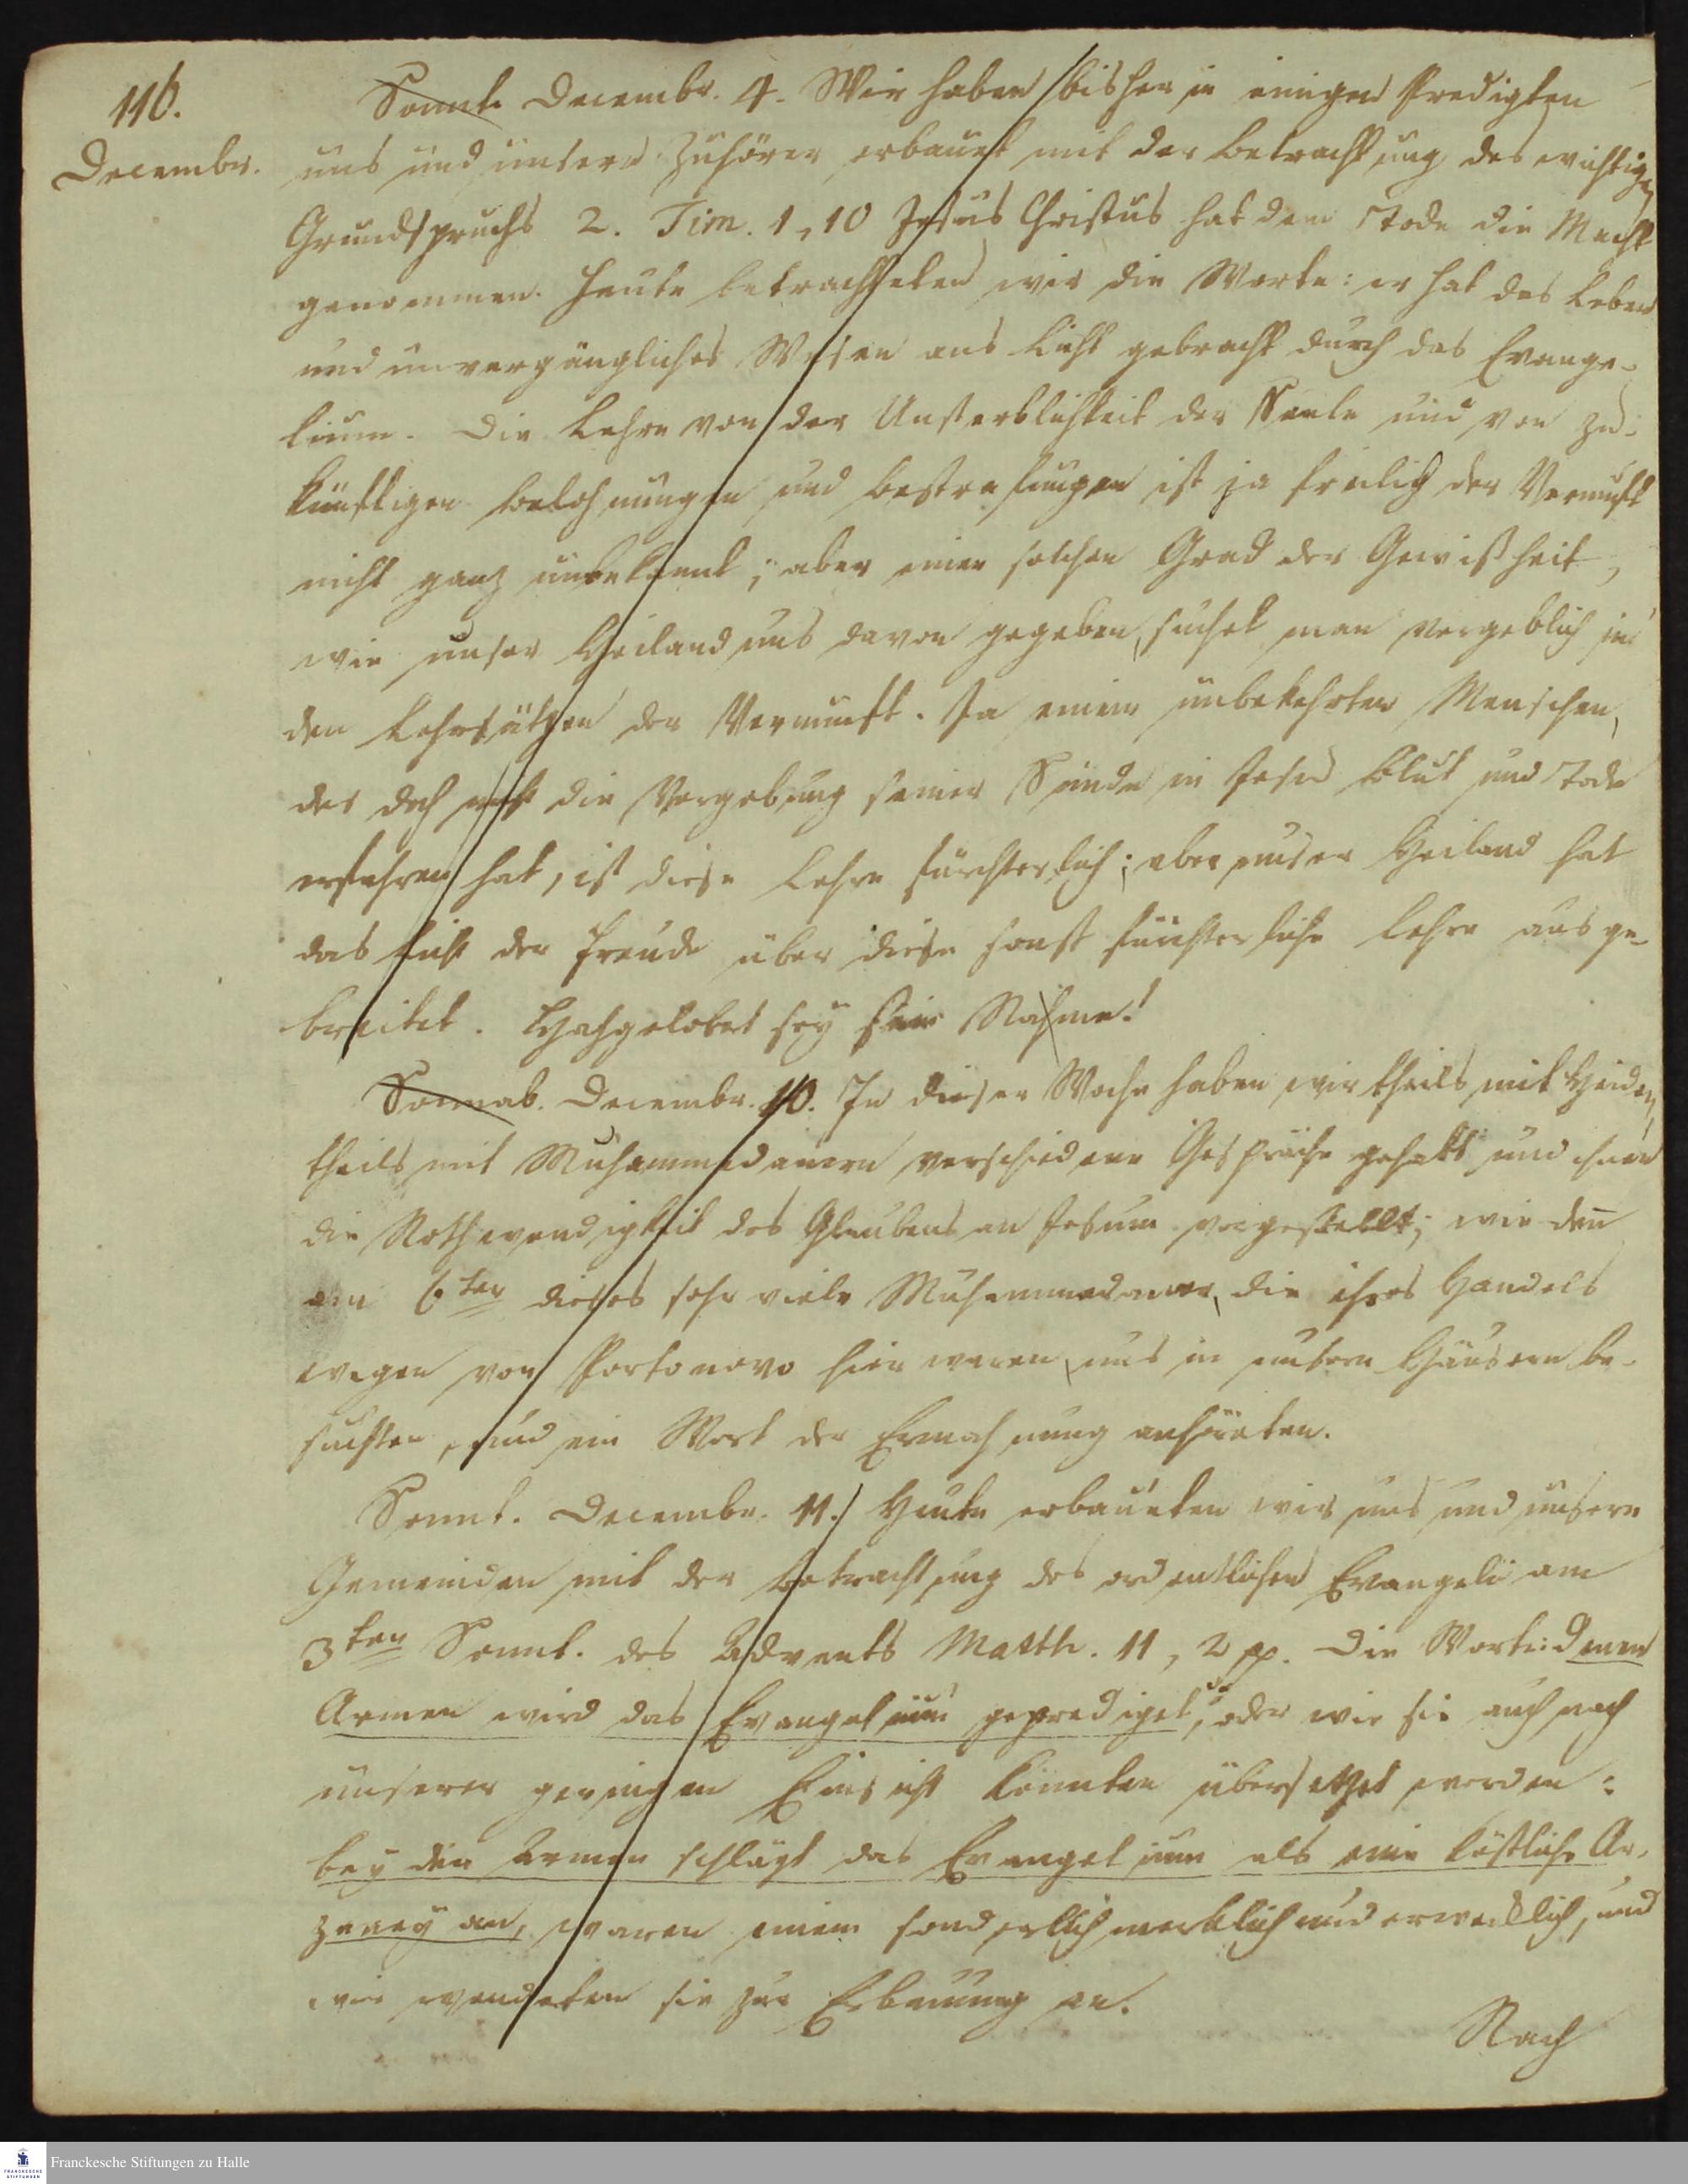 116.
Decembr.
Sonnt. Decembr. 4. Wir haben bisher in einigen Predigten
uns und unsere Zuhörer erbauet mit der Betrachtung des wichtigen
Grundspruchs 2. Tim. 1, 10 Jesus Christus hat dem Tode die Macht
genommen. Heute betrachteten wir die Worte: er hat das Leben
und unvergängliches Wesen ans Licht gebracht durch das Evange-
lium. Die Lehre von der Unsterblichkeit der Seele und von zu-
künftigen Belohnungen und Bestrafungen ist ja freilich der Vernunft
nicht ganz unbekannt; aber einen solchen Grad der Gewißheit,
wie unser Heiland uns davon gegeben, suchet man vergeblich in
den Lehrsätzen der Vernunft. Ja einem unbekehrten Menschen,
der doch nicht die Vergebung seiner Sünde in Jesu Blut und Tode
erfahren hat, ist diese Lehre fürchterlich; aber unser Heiland hat
das Licht der Freude über diese sonst fürchterliche Lehre ausge-
breitet. Hochgelobet sey sein Nahme!
Sonnab. Decembr. 10. In dieser Woche haben wir theils mit Heiden,
theils mit Muhammedanern verschiedene Gespräche gehabt und ihnen
die Nothwendigkeit des Glaubens an Jesum vorgestellt; wie denn
den 6ten dieses sehr viele Muhammedaner, die ihres Handels
wegen von Portonovo hier waren, uns in unsern Häusern be-
suchten, und ein Wort der Ermahnung anhöreten.
Sonnt. Decembr. 11. Heute erbaueten wir uns und unsere
Gemeinden mit der Betrachtung des ordentlichen Evangelii am
3ten Sonnt. des Advents Matth. 11, 2 pp. Die Worte: denen
Armen wird das Evangelium geprediget, oder wie sie auch nach
unserer geringen Einsicht könnten übersetzet werden:
bey den Armen schlägt das Evangelium als eine köstliche Ar-
zeney an, waren einem sonderlich merklich und erwecklich, und
wir wendeten sie zur Erbauung an.
Nach
Franckesche Stiftungen zu Halle
FRANCKESCHE
STIFTUNGEN